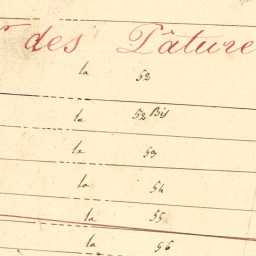 des Pâture
la 52
la 52 Bis
le 53
la 54
la 55
la 56